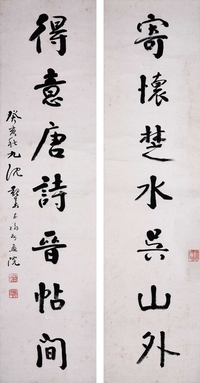 寄懷楚水吳山外
得意唐詩晉帖間
癸亥秋九沈